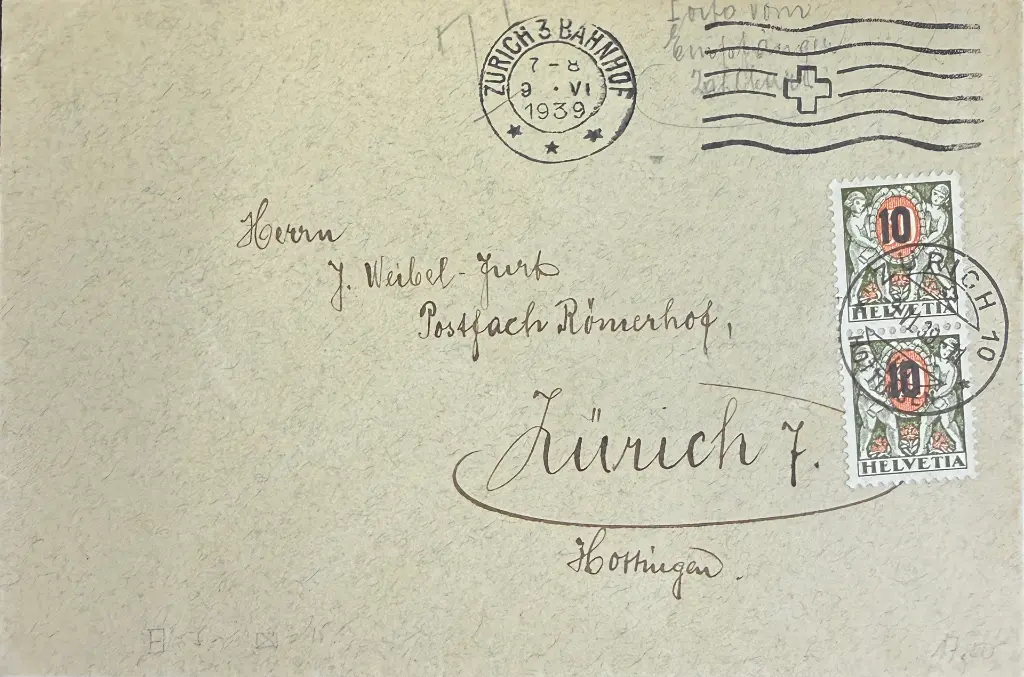 ZÜRICH 3 BAHNHOF
7-8
9 · VI
1939
Porto vom
Empfänger
10
HELVETIA
10
HELVETIA
ZÜRICH 10
HOTTINGEN
Herrn
J. Weibel-Jurt
Postfach Römerhof,
Zürich 7.
Hottingen.